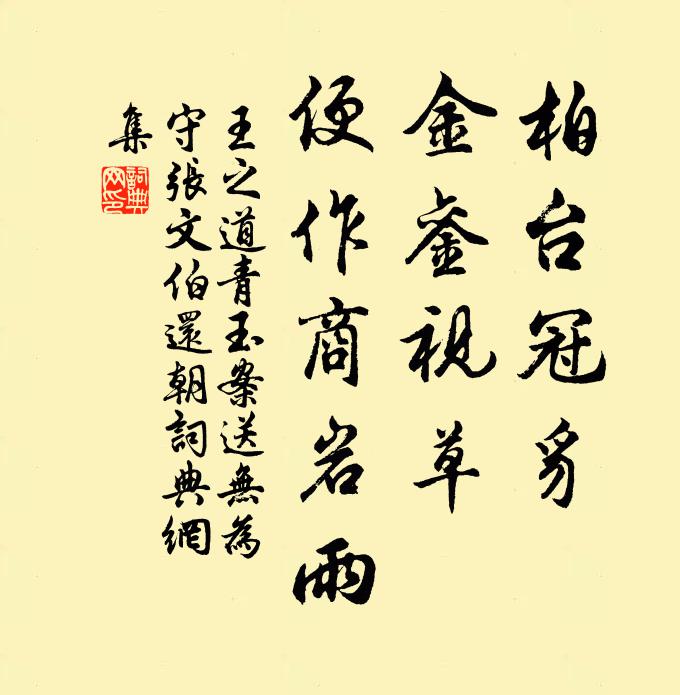 柏台冠豸
金銮視草
便作商岩雨
王之道青玉案送無為
守張文伯還朝詞典網
集
詞典
网印